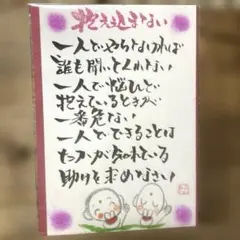 抱え込まない
一人でやらなければ
誰も聞いてくれない
一人で悩んで
抱えているときが
一番危ない
一人でできることは
たかが知れている
助けを求めなさい